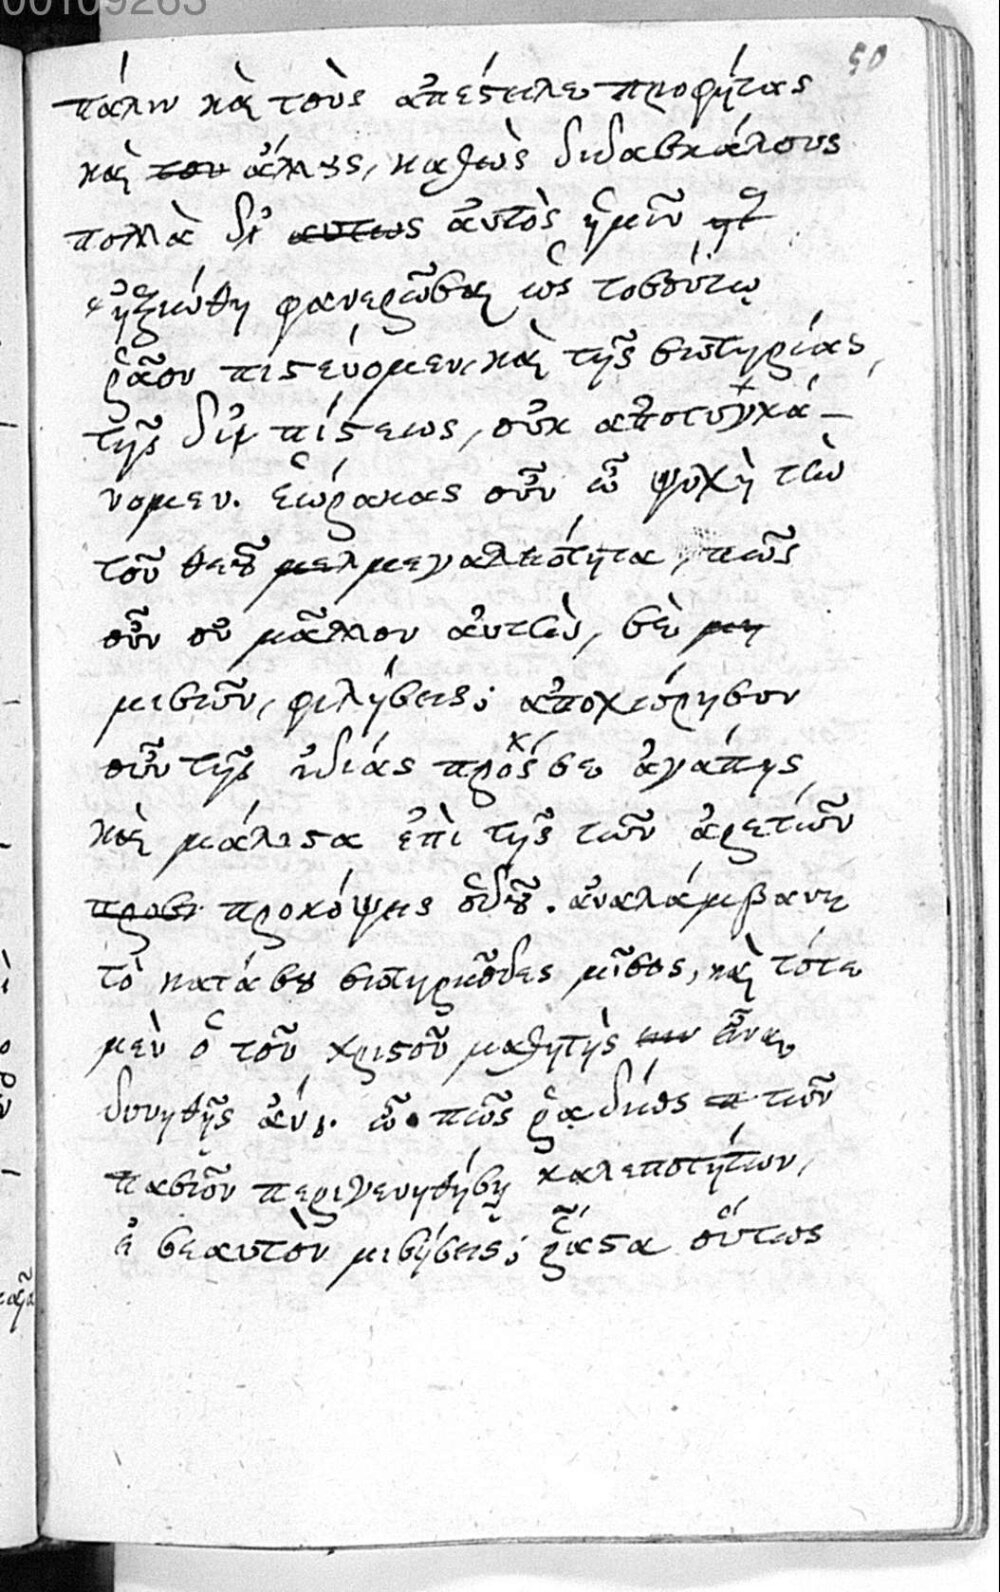 00109263
50
πάλιν καὶ τοὺς ἀπέστειλε προφήτας
καὶ του ἄλλους, καθὼς διδασκάλους
πολλὰ δι' αυτως αὐτὸς ἡμῖν
ἠξιώθη φανερῶσαι ὡς τοσούτῳ
ῥᾷον πιστεύομεν, καὶ τῆς σωτηρίας,
τῆς διὰ πίστεως, οὐκ ἀποτυγχά-
νομεν. ἑώρακας οὖν ὦ ψυχὴ τὴν
τοῦ θεοῦ μελ μεγαλειότητα, πῶς
οὖν οὐ μᾶλλον αὐτὴν, σὲ μη
μισῶν, φιλήσεις; ἀποχώρησον
οὖν τῆς ἰδίας πρός σε ἀγάπης,
καὶ μάλιστα ἐπὶ τῆς τῶν ἀρετῶν
προσ προκόψεις ὁδοῦ. ἀναλάμβανε
τὸ κατά σου σωτηριῶδες μῖσος, καὶ τότε
μὲν ὁ τοῦ χριστοῦ μαθητὴς εἶναι
δυνηθῇς ἄν. ὢ πῶς ῥᾳδίως π τῶν
παθῶν περιγενηθήσῃ χαλεποτήτων,
εἰ σεαυτὸν μισήσεις; ῥᾷστα οὕτως